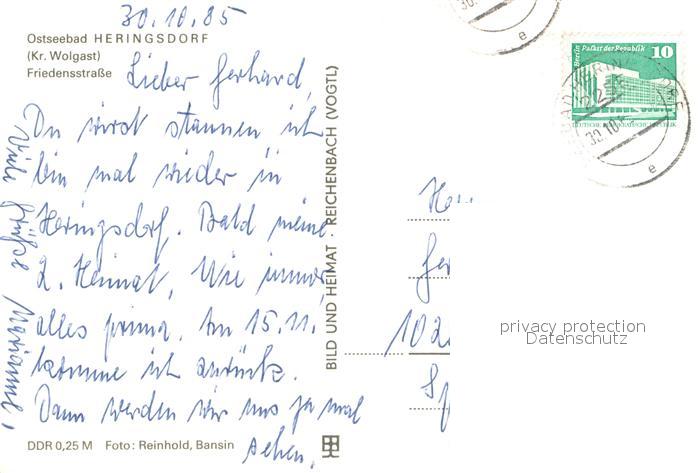 30.10.85
Ostseebad HERINGSDORF
(Kr. Wolgast)
Friedensstraße
Lieber Gerhard,
Du wirst staunen ich
bin mal wieder in
Heringsdorf. Bald meine
2. Heimat. Wie immer
alles prima. Am 15.11.
komme ich zurück.
Dann werden wir uns ja mal
sehen.
Viele Grüße Marianne,
DDR 0,25 M Foto: Reinhold, Bansin
BILD UND HEIMAT REICHENBACH (VOGTL)
Berlin Palast der Republik 10
DEUTSCHE DEMOKRATISCHE REPUBLIK
30.10.
e
e
Her
Ger
102
Sp
privacy protection
Datenschutz